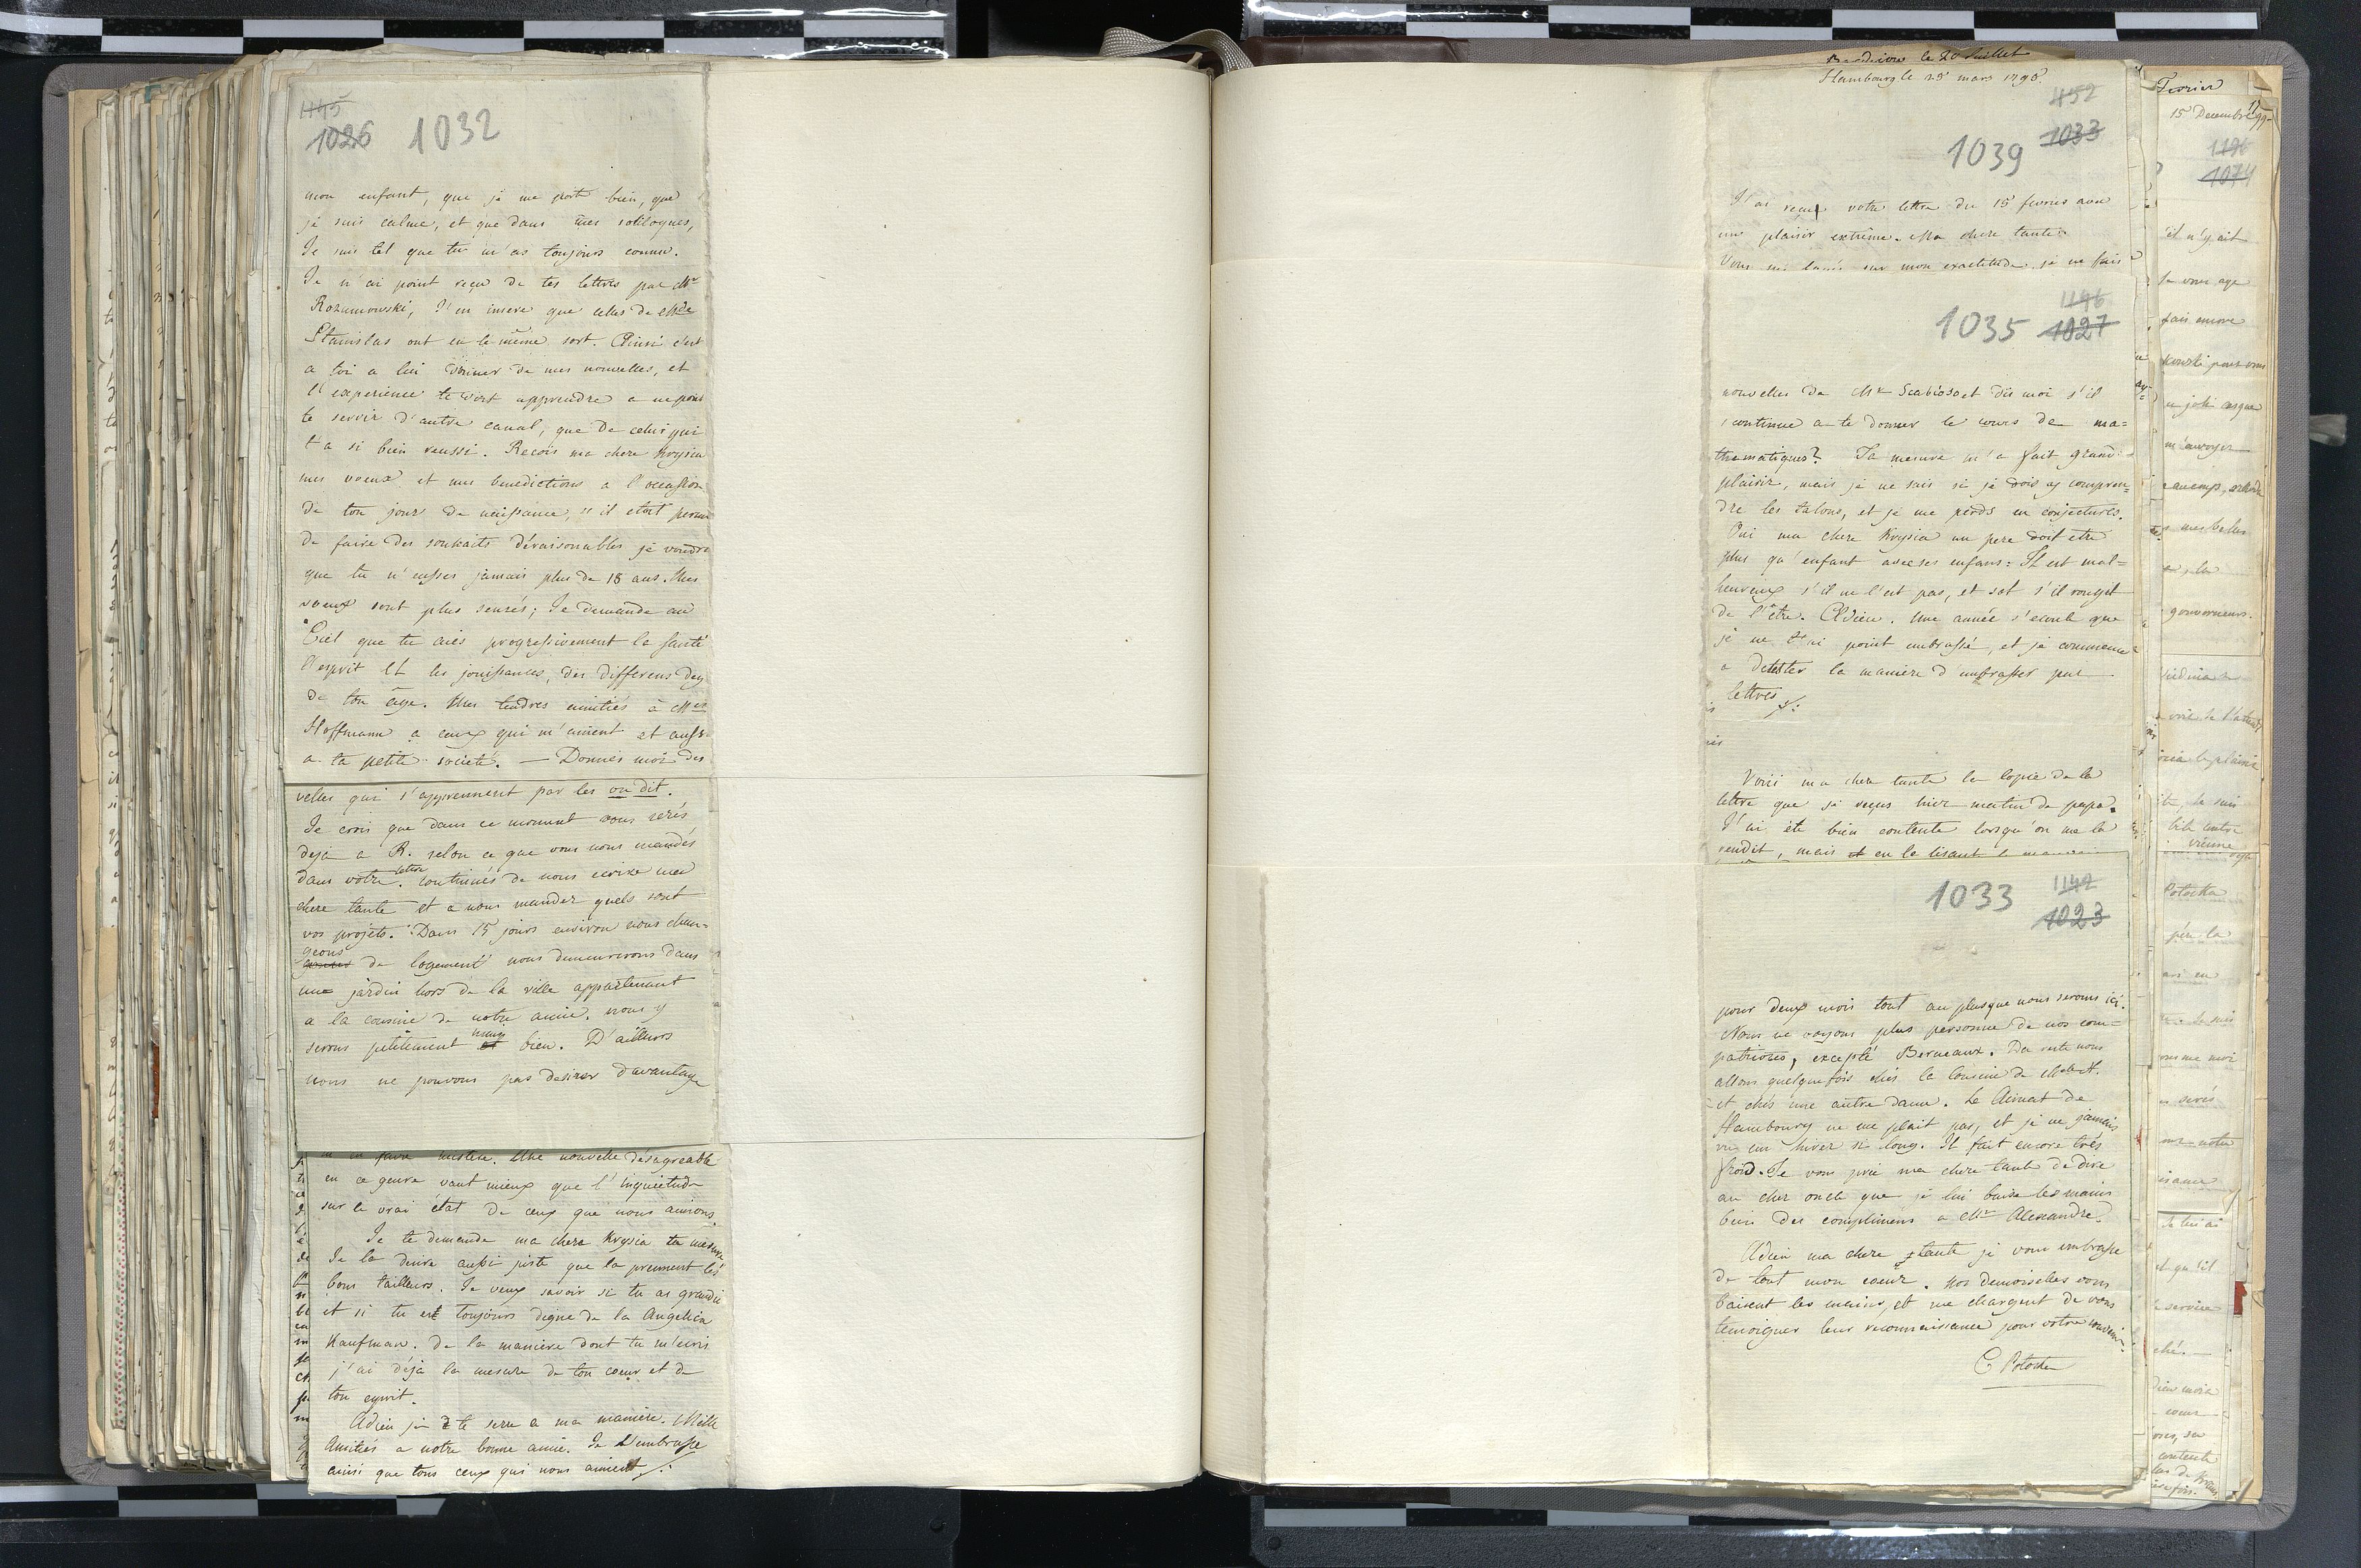 1145
1026 1032
mon enfant, que je me porte bien, que
je suis calme, et que dans mes soliloques,
Je suis tel que tu m'as toujours connu.
Je n'ai point reçu de tes lettres par Mr
Rozumowski, J'en infere que celles de Mde
Stanislas ont eu le même sort. Ainsi c'est
a toi a lui donner de mes nouvelles, et
l'experience te doit apprendre a ne point
te servir d'autre canal, que de celui qui
t'a si bien reussi. Recois ma chere Krysia
mes voeux et mes benedictions a l'occasion
de ton jour de naissance, s'il etoit permis
de faire des souhaits déraisonables je voudrо
que tu n'eusses jamais plus de 18 ans. Mes
voeux sont plus sensés; Je demande au
Ciel que tu aies progressivement la santé
l'esprit et les jouissances, des differens deg
de ton âge. Mes tendres amitiés à Mer
Hoffmann a ceux qui m'aiment et aussi
a ta petite societé. — Donnés moi des
velles qui s'apprennent par les on dit.
Je crois que dans ce moment vous serés
deja a R. selon ce que vous nous mandés
dans votre lettre. continués de nous ecrire ma
chere tante et a nous mander quels sont
vos projets. Dans 15 jours environ nous chan-
geons de logement nous demeurerons dans
une jardin hors de la ville appartenant
a la cousine de notre amie. nous y
serons petitement mais bien. D'ailleurs
nous ne pouvons pas desirer davantage
Une nouvelle désagreable
en ce genre vaut mieux que l'inquietude
sur le vrai état de ceux que nous aimons.
Je te demande ma chere Krysia ta mesure
Je la desire aussi juste que la prennent les
bons tailleurs. Je veux savoir si tu as grandie
et si tu est toujours digne de la Angelica
Kaufman. De la maniere dont tu m'ecris
j'ai déjà la mesure de ton coeur et de
ton esprit.
Adieu je te serre a ma maniere. Mille
Amitiés a notre bonne amie. Je L'embrasse
ainsi que tous ceux qui nous aiment ./:
le 20 Juillet
Hambourg le 29 mars 1798.
452
1039 1033
J'ai reçu votre lettre du 15 fevrier avec
un plaisir extrême. Ma chere tante
Vous me sur mon exactitude, je ne fais
1146
1035 1027
nouvelles de Mr Scabioso et dis moi s'il
continue a te donner le cours de ma=
thematiques? Ta mesure m'a fait grand
plaisir, mais je ne sais si je dois y compren=
dre les talons, et je me perds en conjectures.
Oui ma chere Krysia un pere doit etre
plus qu'enfant avec ses enfans: Il est mal=
heureux s'il ne l'est pas, et sot s'il rougit
de l'être. Adieu. Une année s'ecoule que
je ne t'ai point embrassé, et je commence
a detester la maniere d'embrasser par
lettres ./:
Voici ma chere tante la copie de la
lettre que je reçus hier matin de papa.
J'ai été bien contente lorsqu'on me la
rendit, mais et en la lisant
1033 1142
1023
pour deux mois tout au plus que nous serons ici.
Nous ne voyons plus personne de nos com=
patriotes, excepté Berneaux. Du reste nous
allons quelquefois chés la Cousine de Mde H.
et chés une autre dame. Le Climat de
Hambourg ne me plait pas, et je ne jamais
vu un hiver si long. Il fait encore très
froid. Je vous prie ma chere tante de dire
au cher oncle que je lui baise les mains
bien des complimens a Mr Alexandre.
Adieu ma chere tante je vous embrasse
de tout mon coeur. Nos Demoiselles vous
baisent les mains, et me chargent de vous
temoigner leur reconnaissance pour votre souvenir.
C Potocka
Fevrier
15 Decembre 99
1196
1074
'il n'y ait
fais encore
pour vous
un joli casque
m'envoyer
mes belles
gouverneurs.
le plaisir
je suis
Potocka
père la
comme moi
serés
notre
Je lui ai
et qu'il
le service
coeur
contente